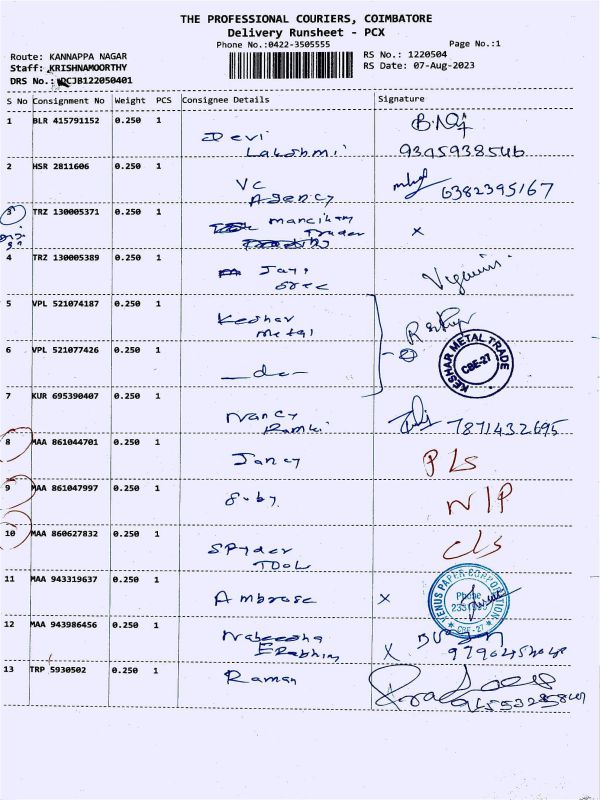 THE PROFESSIONAL COURIERS, COIMBATORE
Delivery Runsheet - PCX
Phone No.:0422-3505555
Page No.:1
Route: KANNAPPA NAGAR
RS No.: 1220504
Staff: KRISHNAMOORTHY
RS Date: 07-Aug-2023
DRS No.: PCJB122050401
S No Consignment No Weight PCS Consignee Details Signature
1 BLR 415791152 0.250 1
Devi
Lakshmi
2 HSR 2811606 0.250 1
VC
Agency
6382395167
3 TRZ 130005371 0.250 1
Trader
x
4 TRZ 130005389 0.250 1
Jay
5 VPL 521074187 0.250 1
Keshar
Metal
6 VPL 521077426 0.250 1
-do-
KESHAR METAL TRADE
CBE-27
7 KUR 695390407 0.250 1
Nancy
7871432695
8 MAA 861044701 0.250 1
Jancy
9 MAA 861047997 0.250 1
N/P
10 MAA 860627832 0.250 1
Spyder
TOOL
11 MAA 943319637 0.250 1
Ambrose
x
VENUS PAPER CORPORATION
Phone
CBE-27
12 MAA 943986456 0.250 1
x
13 TRP 5930502 0.250 1
Raman